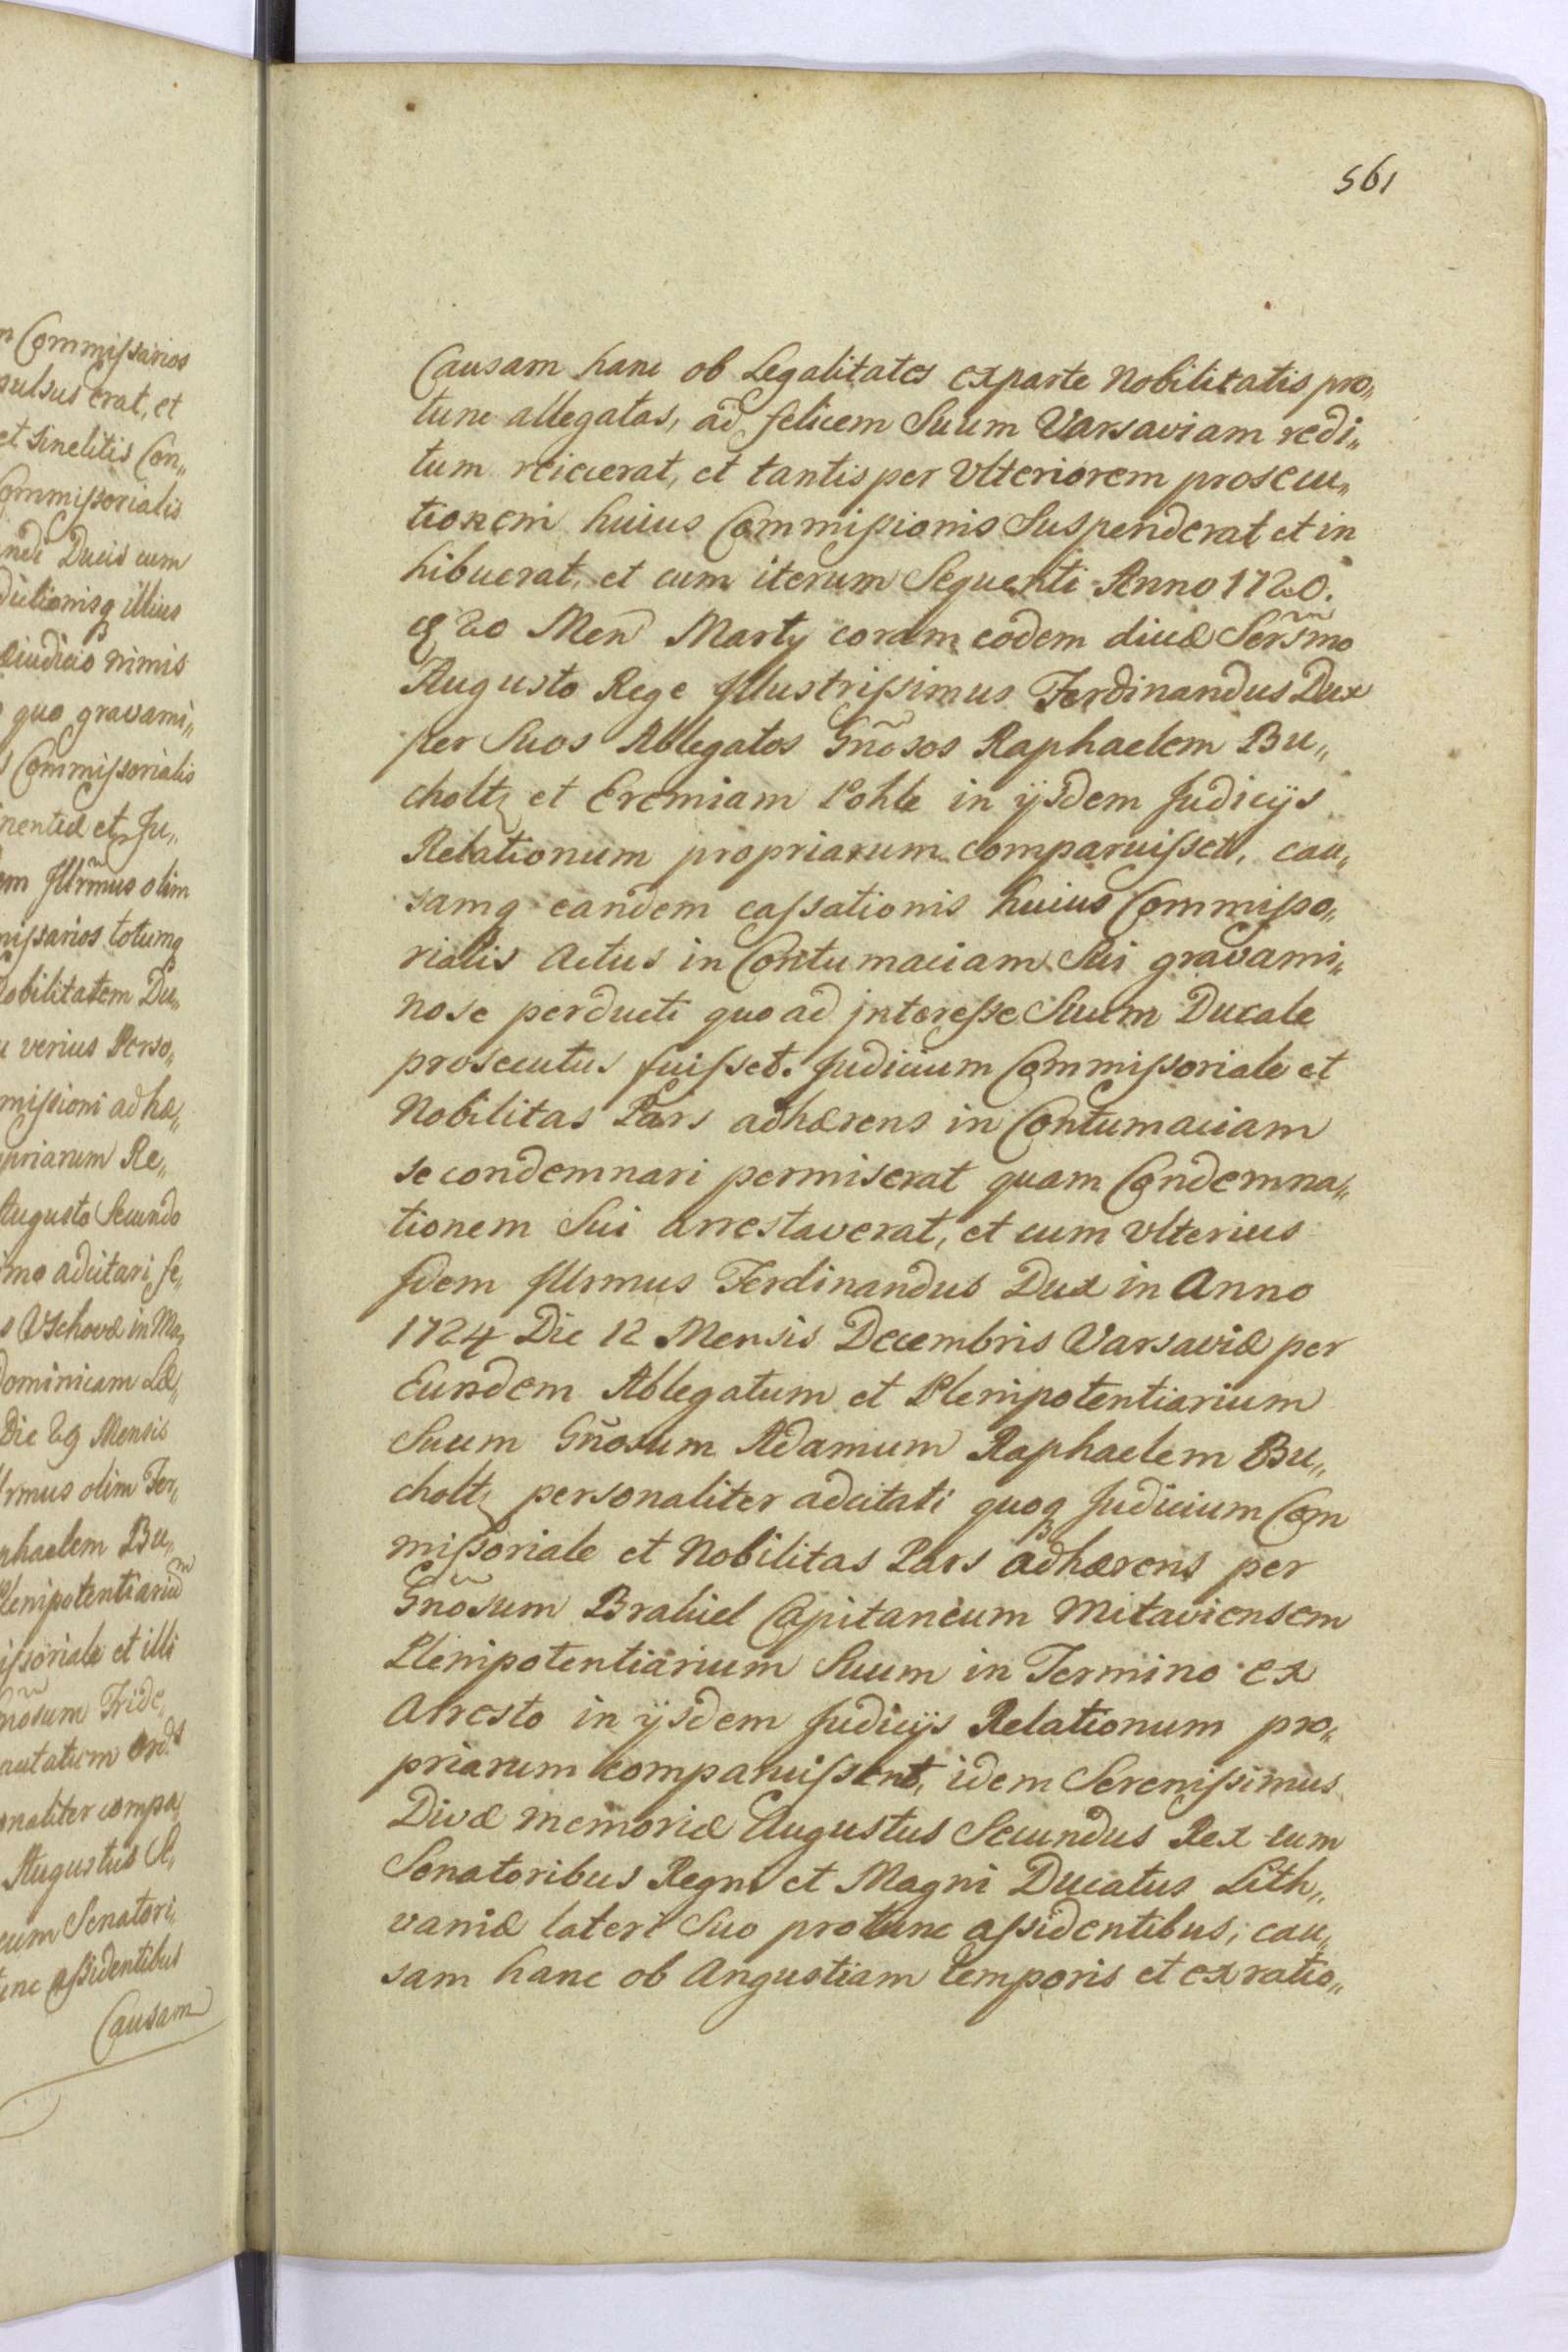 n Commissarios
pulsus erat, et
et sinelitis Con„
Commissorialis
nandi Ducis cum
dictionisq illius
æiudicio nimis
quo gravami„
s Commissorialis
nentiæ et Ju„
em Illrmus olim
missarios totumq
Nobilitatem Du„
u verius Perso„
missioni adhæ„
priarum Re„
Augusto Secundo
imo adcitari fe„
s Vschovæ in Ma„
Dominicam Læ„
Die 29 Mensis
rmus olim Fer„
phaelem Bu„
Plenipotentiariũ
issoriale et illi
nõsum Fride„
autatum Ord.s
onaliter compa„
Augustus Se„
cum Senatori„
tunc assidentibus
Causam
561
Causam hanc ob Legalitates exparte Nobilitatis pro„
tunc allegatas, ad felicem Suum Varsaviam redi„
tum reiecerat, et tantisper Vlteriorem prosecu„
tionem huius Commissionis Suspenderat et in
hibuerat, et cum iterum Sequenti Anno 1720.
20 Men Martÿ coram eodem divæ Serm̃o
Augusto Rege Illustrissimus Ferdinandus Dux
per Suos Ablegatos Gñosos Raphaelem Bu„
choltz et Eremiam Pohle in ÿsdem Judicÿs
Relationum propriarum comparuisset, cau„
samq eandem cassationis huius Commisso„
rialis Actus in Contumaciam Sui gravami„
nose perducti quoad jnteresse Suum Ducale
prosecutus fuisset. Judicium Commissoriale et
Nobilitas Pars adhærens in Contumaciam
se condemnari permiserat quam Condemna„
tionem Sui arrestaverat, et cum vlterius
Idem Illrmus Ferdinandus Dux in Anno
1724 Die 12 Mensis Decembris Varsaviæ per
Eundem Ablegatum et Plenipotentiarium
Suum Gñosum Adamum Raphaelem Bu„
choltz personaliter adcitati quoq Judicium Com
missoriale et Nobilitas Pars adhærens per
Gñosum Brakiel Capitaneum Mitaviensem
Plenipotentiarium Suum in Termino ex
Arresto in ÿsdem Judicÿs Relationum pro„
priarum comparuissent, idem Serenissimus
Divæ memoriæ Augustus Secundus Rex cum
Senatoribus Regni et Magni Ducatus Lith„
vaniæ lateri Suo protunc assidentibus, cau„
sam hanc ob Angustiam temporis et ex ratio„